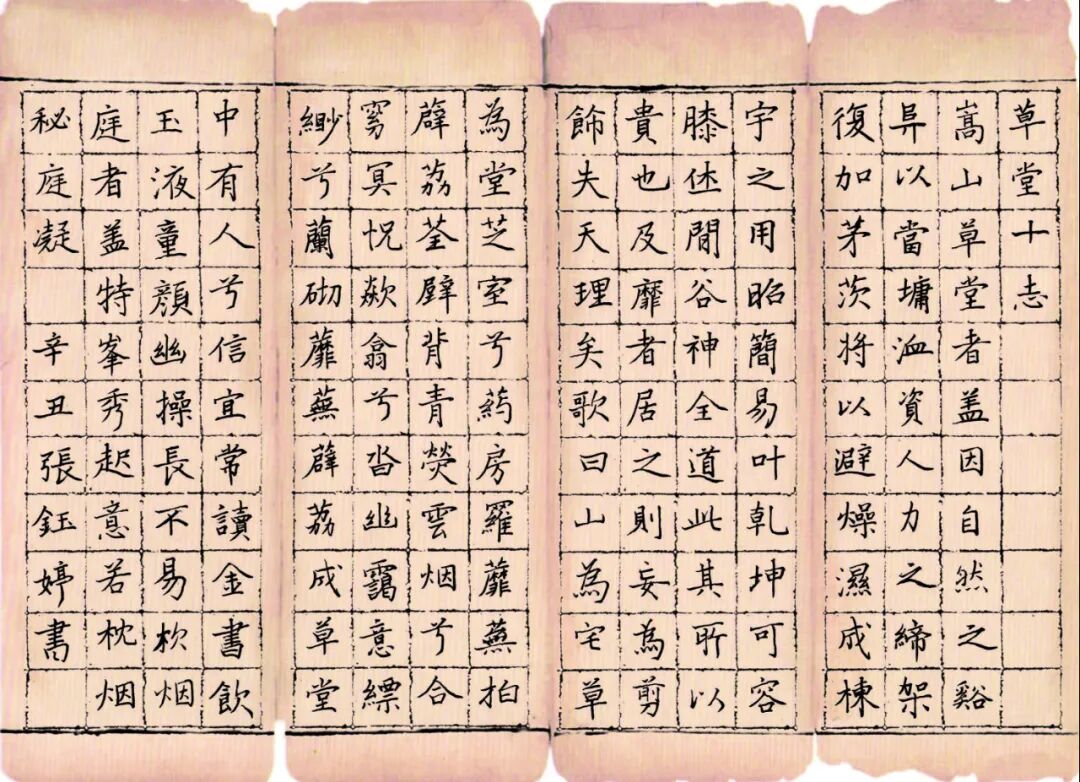 草堂十志
嵩山草堂者盖因自然之谿
阜以當墉洫資人力之締架
復加茅茨将以避燥濕成棟
宇之用昭簡易叶乾坤可容
膝休間谷神全道此其所以
貴也及靡者居之則妄為剪
飾失天理矣歌曰山為宅草
為堂芝室兮葯房羅蘼蕪拍
薜荔荃壁背青熒雲烟兮合
窈冥怳歘翕兮沓幽靄意縹
緲兮蘭砌蘼蕪薜荔成草堂
中有人兮信宜常讀金書飲
玉液童顏幽操長不易枕烟
庭者盖特峯秀起意若枕烟
秘庭凝 辛丑張鈺婷書